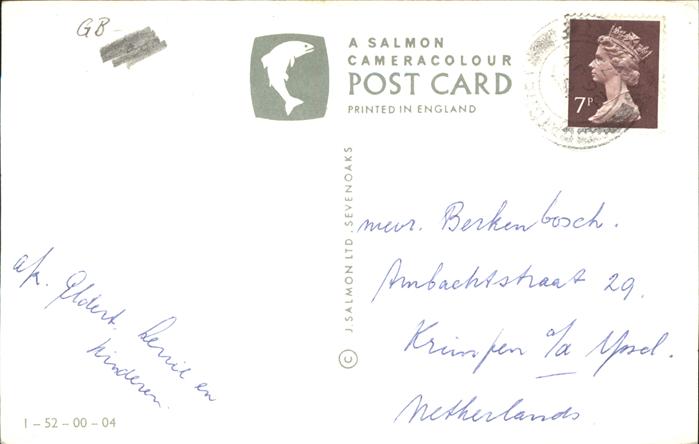 GB
A SALMON
CAMERACOLOUR
POST CARD
PRINTED IN ENGLAND
7P
© J. SALMON LTD., SEVENOAKS
mevr. Berkenbosch.
Ambachtstraat 29.
Krimpen a/d Yssel.
Netherlands
afz. Eldert, en
kinderen.
1-52-00-04